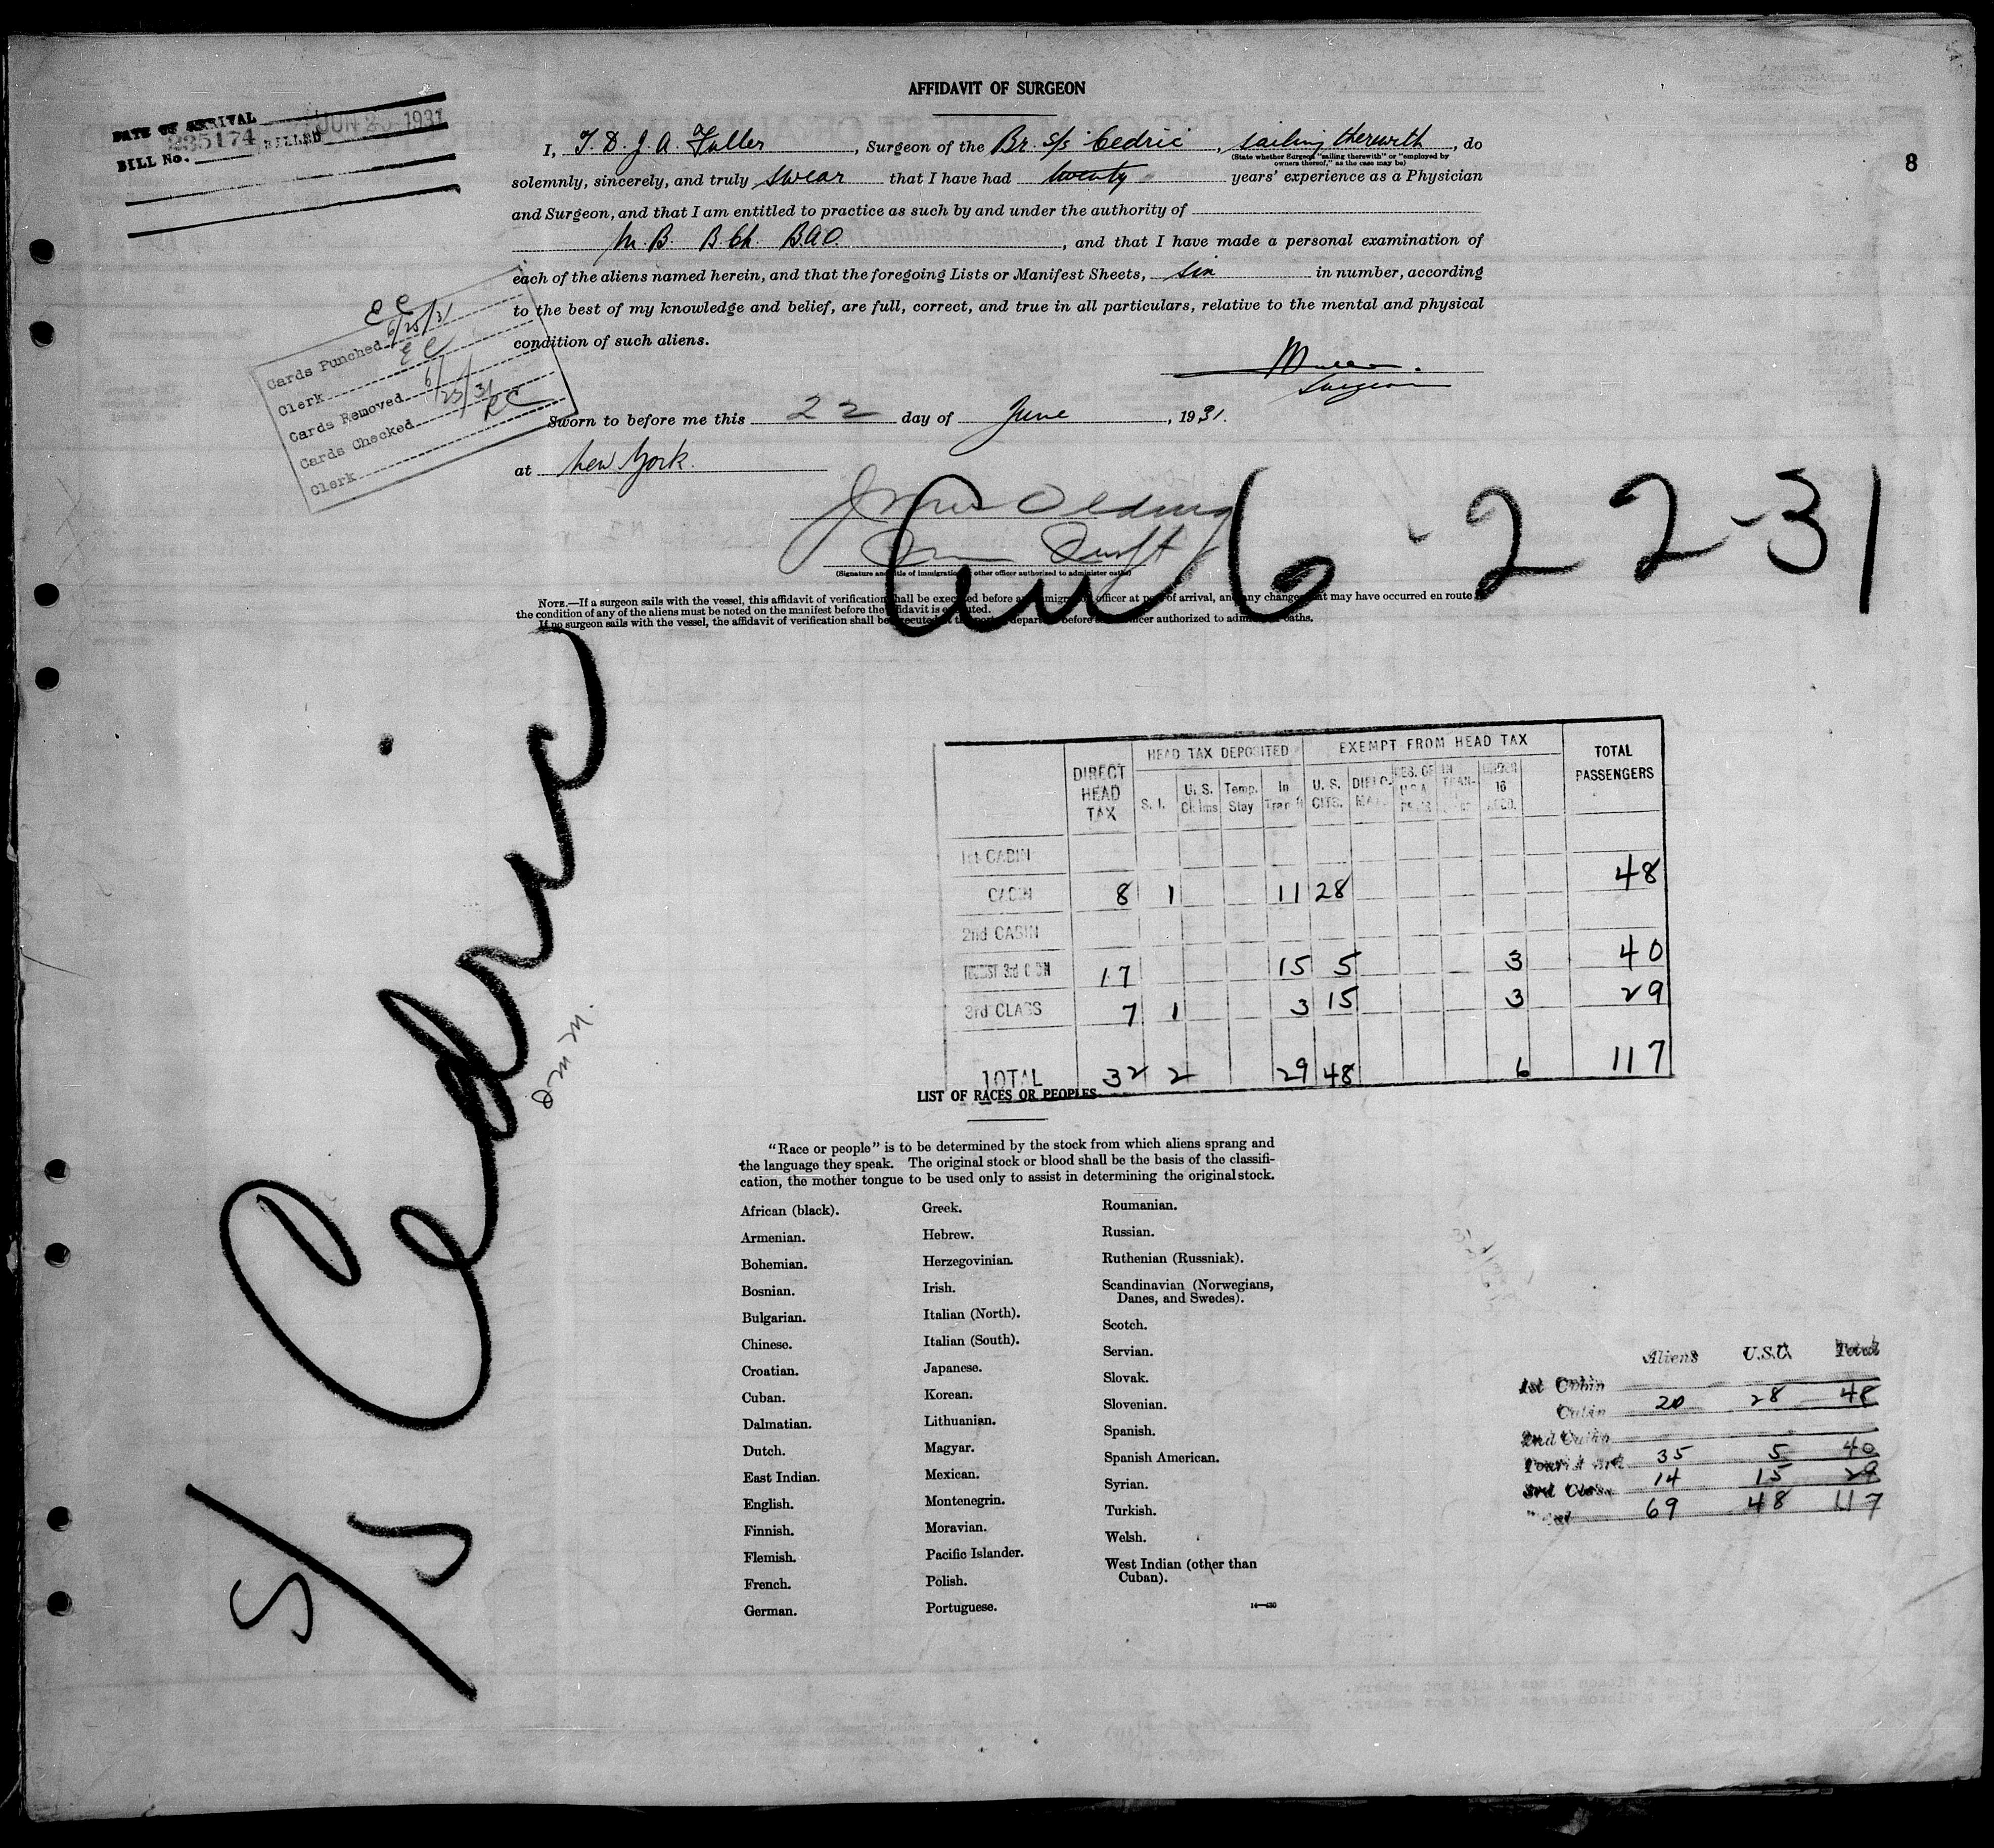 AFFIDAVIT OF SURGEON
DATE OF ARRIVAL JUN 1931
BILL No. 235174 BILLED
8
I, T. D. J. A. Fuller, Surgeon of the Br. s/s Cedric, sailing therewith, do
(State whether Surgeon "sailing therewith" or "employed by
owners thereof," as the case may be)
solemnly, sincerely, and truly swear that I have had twenty years' experience as a Physician
and Surgeon, and that I am entitled to practice as such by and under the authority of
M. B. B. Ch. B.A.O., and that I have made a personal examination of
each of the aliens named herein, and that the foregoing Lists or Manifest Sheets, six in number, according
to the best of my knowledge and belief, are full, correct, and true in all particulars, relative to the mental and physical
condition of such aliens.
Surgeon
EC
Cards Punched 6/25/31
Clerk EC
Cards Removed 6/25/31
Cards Checked EC
Clerk
Sworn to before me this 22 day of June, 1931.
at New York.
(Signature and title of immigration or other officer authorized to administer oaths)
Arr 6-22-31
NOTE.—If a surgeon sails with the vessel, this affidavit of verification shall be executed before an immigration officer at port of arrival, and any changes that may have occurred en route in
the condition of any of the aliens must be noted on the manifest before the affidavit is executed.
If no surgeon sails with the vessel, the affidavit of verification shall be executed at the port of departure before an officer authorized to administer oaths.
S/S Cedric
DIRECT HEAD TAX HEAD TAX DEPOSITED EXEMPT FROM HEAD TAX TOTAL PASSENGERS
S. I. U. S. Clms Temp. Stay In Transit U. S. CITS. DIPLO-MATS RES. OF U.S.A. IN TRAN- UNDER 16 ACCD.
1st CABIN
CABIN 8 1 11 28 48
2nd CABIN
TOURIST 3rd CABIN 17 15 5 3 40
3rd CLASS 7 1 3 15 3 29
TOTAL 32 2 29 48 6 117
LIST OF RACES OR PEOPLES
"Race or people" is to be determined by the stock from which aliens sprang and
the language they speak. The original stock or blood shall be the basis of the classifi-
cation, the mother tongue to be used only to assist in determining the original stock.
African (black).
Armenian.
Bohemian.
Bosnian.
Bulgarian.
Chinese.
Croatian.
Cuban.
Dalmatian.
Dutch.
East Indian.
English.
Finnish.
Flemish.
French.
German.
Greek.
Hebrew.
Herzegovinian.
Irish.
Italian (North).
Italian (South).
Japanese.
Korean.
Lithuanian.
Magyar.
Mexican.
Montenegrin.
Moravian.
Pacific Islander.
Polish.
Portuguese.
Roumanian.
Russian.
Ruthenian (Russniak).
Scandinavian (Norwegians,
Danes, and Swedes).
Scotch.
Servian.
Slovak.
Slovenian.
Spanish.
Spanish American.
Syrian.
Turkish.
Welsh.
West Indian (other than
Cuban).
Aliens U.S.C. Total
1st Cabin
Cabin 20 28 48
2nd Cabin
Tourist 3rd 35 5 40
3rd Class 14 15 29
Total 69 48 117